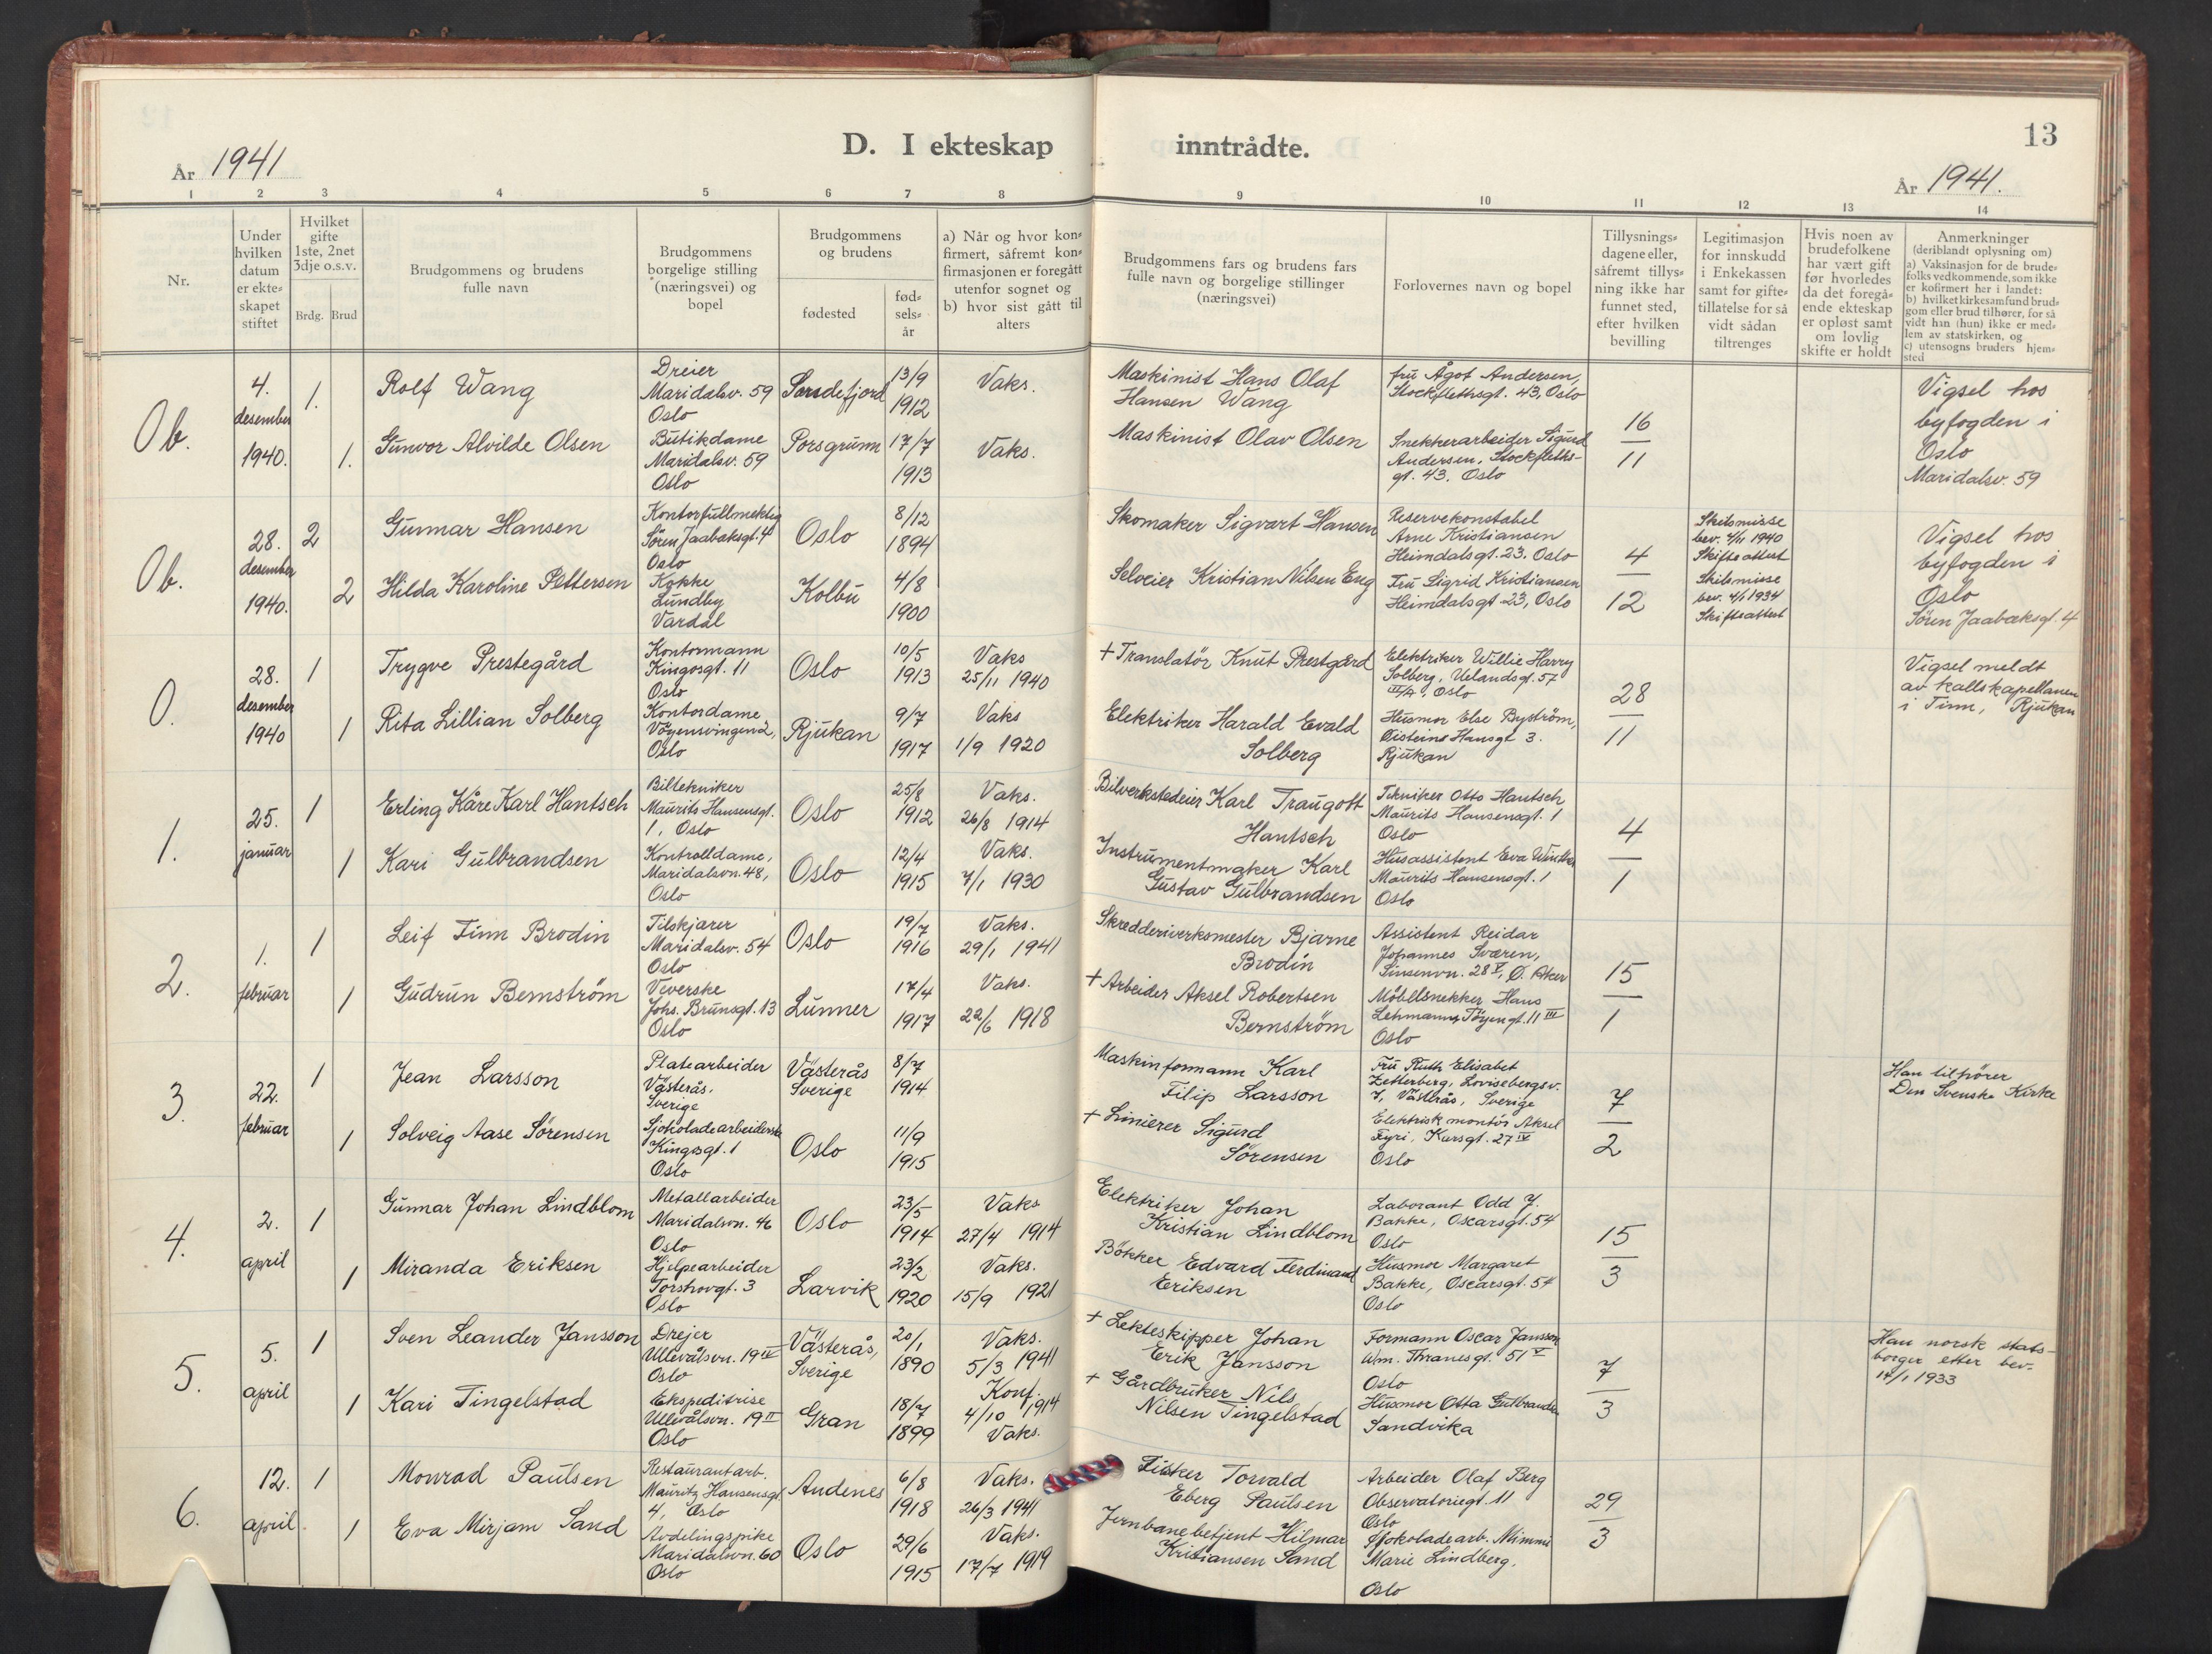 13
År 1941
D. I ekteskap inntrådte.
År 1941.
1 2 3 4 5 6 7 8 9 10 11 12 13 14
Nr.
Under
hvilken
datum
er ekte-
skapet
stiftet
Hvilket
gifte
1ste, 2net
3dje o.s.v.
Brdg. Brud
Brudgommens og brudens
fulle navn
Brudgommens
borgelige stilling
(næringsvei) og
bopel
Brudgommens
og brudens
fødested
fød-
sels-
år
a) Når og hvor kon-
firmert, såfremt kon-
firmasjonen er foregått
utenfor sognet og
b) hvor sist gått til
alters
Brudgommens fars og brudens fars
fulle navn og borgelige stillinger
(næringsvei)
Forlovernes navn og bopel
Tillysnings-
dagene eller,
såfremt tillys-
ning ikke har
funnet sted,
efter hvilken
bevilling
Legitimasjon
for innskudd
i Enkekassen
samt for gifte-
tillatelse for så
vidt sådan
tiltrenges
Hvis noen av
brudefolkene
har vært gift
før hvorledes
da det foregå-
ende ekteskap
er opløst samt
om lovlig
skifte er holdt
Anmerkninger
(deriblandt oplysning om)
a) Vaksinasjon for de brude-
folks vedkommende, som ikke
er kofirmert her i landet:
b) hvilket kirkesamfund brud-
gom eller brud tilhører, for så
vidt han (hun) ikke er med-
lem av statskirken, og
c) utensogns bruders hjem-
sted
0b.
4.
desember
1940.
1.
Rolf Wang
Dreier
Maridalsv. 59
Oslo
Sandefjord
13/9
1912
Vaks.
Maskinist Hans Olaf
Hansen Wang
fru Ågot Andersen,
Stockflethsgt. 43, Oslo
1.
Gunvor Alvilde Olsen
Butikdame
Maridalsv. 59
Oslo
Porsgrunn
17/7
1913
Vaks.
Maskinist Olav Olsen
Snekkerarbeider Sigurd
Andersen, Stockfleths-
gt. 43. Oslo
16
11
Vigsel hos
byfogden i
Oslo
Maridalsv. 59
0b.
28.
desember
1940.
2
Gunnar Hansen
Kontorfullmektig
Søren Jaabæksgt. 4
Oslo
Oslo
8/12
1894
Skomaker Sigvart Hansen
Reservekonstabel
Arne Kristiansen
Heimdalsgt. 23. Oslo
2
Hilda Karoline Pettersen
Kokke
Lundby
Vardal
Kolbu
4/8
1900
Selveier Kristian Nilsen Eng
Fru Sigrid Kristiansen
Heimdalsgt 23, Oslo
4
12
Skilsmisse
bev. 4/11 1940
Skifteattest
Skilsmisse
bev. 4/1 1934
Skifteattest
Vigsel hos
byfogden i
Oslo
Søren Jaabæksgt. 4
0.
28.
desember
1940
1
Trygve Prestegård
Kontormann
Kingosgt. 11
Oslo
Oslo
10/5
1913
Vaks
25/11 1940
+ Translatör Knut Prestgård
Elektriker Willie Harry
Solberg, Uelandsgt. 57
Oslo
1
Rita Lillian Solberg
Kontordame
Vøyensvingen 2,
Oslo
Rjukan
9/7
1917
Vaks
1/9 1920
Elektriker Harald Evald
Solberg
Husmor Else Byström,
Øisteins Hansgt 3.
Rjukan
28
11
Vigsel meldt
av kallskapellanen
i Tinn, Rjukan
1.
25.
januar
1
Erling Kåre Karl Hantsch
Biltekniker
Maurits Hansensgt.
1, Oslo
Oslo
25/8
1912
Vaks.
26/8 1914
Bilverkstedeier Karl Traugott
Hantsch
Tekniker Otto Hantsch
Maurits Hansensgt. 1
Oslo
1
Kari Gulbrandsen
Kontrolldame,
Maridalsvn. 48,
Oslo
Oslo
12/4
1915
Vaks.
7/1 1930
Instrumentmaker Karl
Gustav Gulbrandsen
Husassistent Eva Winther
Maurits Hansensgt. 1
Oslo
4
1
2.
1.
februar
1
Leif Finn Brodin
Tilskjærer
Maridalsv. 54
Oslo
Oslo
19/7
1916
Vaks.
29/1 1941
Skredderiverksmester Bjarne
Brodin
Assistent Reidar
Johannes Sværen,
Sinsenvn. 28 V, Ø. Aker
1
Gudrun Bernström
Veverske
Johs. Brunsgt. 13
Oslo
Lunner
17/4
1917
Vaks.
22/6 1918
+ Arbeider Aksel Robertsen
Bernström
Möbelsnekker Hans
Lehmann, Töyengt. 11 III
Oslo
15
1
3.
22.
februar
1
Jean Larsson
Platearbeider
Västerås.
Sverige
Västerås
Sverige
8/7
1914
Maskinformann Karl
Filip Larsson
Fru Ruth Elisabet
Zetterberg, Lovisebergsv.
7, Västerås, Sverige
1
Solveig Aase Sørensen
Sjokoladearbeiderske
Kingosgt. 1
Oslo
Oslo
11/9
1915
+ Linierer Sigurd
Sørensen
Elektrisk montör Aksel
Fyri, Karsgt. 27 IV
Oslo
7
2
Han tilhører
Den Svenske Kirke
4.
2.
april
1
Gunnar Johan Lindblom
Metallarbeider
Maridalsvn. 46
Oslo
Oslo
23/5
1914
Vaks
27/4 1914
Elektriker Johan
Kristian Lindblom
Laborant Odd J.
Bakke, Oscarsgt. 54
Oslo
1
Miranda Eriksen
Hjelpearbeider
Torshovgt. 3
Oslo
Larvik
23/2
1920
Vaks.
15/9 1921
Bökker Edvard Ferdinand
Eriksen
Husmor Margaret
Bakke, Oscarsgt. 54
Oslo
15
3
5.
5.
april
1
Sven Leander Jansson
Drejer
Ullevålsvn. 19 IV
Oslo
Västerås,
Sverige
20/1
1890
Vaks.
5/3 1941
+ Lekteskipper Johan
Erik Jansson
Formann Oscar Jansson
Wm. Thranesgt. 51 V
Oslo
1
Kari Tingelstad
Ekspeditrise
Ullevålsvn. 19 II
Oslo
Gran
18/7
1899
Konf.
4/10 1914
Vaks.
+ Gårdbruker Nils
Nilsen Tingelstad
Husmor Otta Gulbrandsen
Sandvika
7
3
Han norsk stats-
borger etter bev.
17/1 1933
6.
12.
april
1
Monrad Paulsen
Restaurantarb.
Mauritz Hansensgt.
4, Oslo
Andenes
6/8
1918
Vaks.
26/3 1941
Fisker Torvald
Eberg Paulsen
Arbeider Olaf Berg
Observatoriegt. 11
Oslo
1
Eva Mirjam Sand
Avdelingspike
Maridalsvn. 60
Oslo
Oslo
29/6
1915
Vaks.
17/7 1919
Jernbanebetjent Hilmar
Kristiansen Sand
Sjokoladearb. Mimmi
Marie Lindberg.
Oslo
29
3